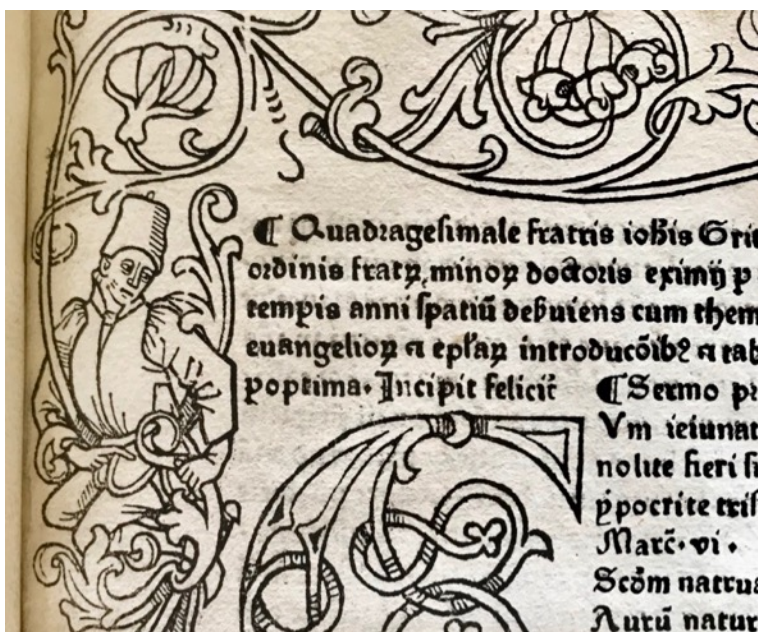 ¶ Quadragesimale fratris ioħis Grit
ordinis fratꝝ minoꝝ doctoris eximij p
tempis anni spatiū deßuiens cum them
euangelioꝝ ⁊ epl̄aꝝ introducōib⁹ ⁊ tab
poptima. Incipit felicit̄
¶ Sermo pr
Vm ieiunat
nolite fieri si
ẏpocrite tris
Marc̄. vi.
Scōm natrua
Autū natur